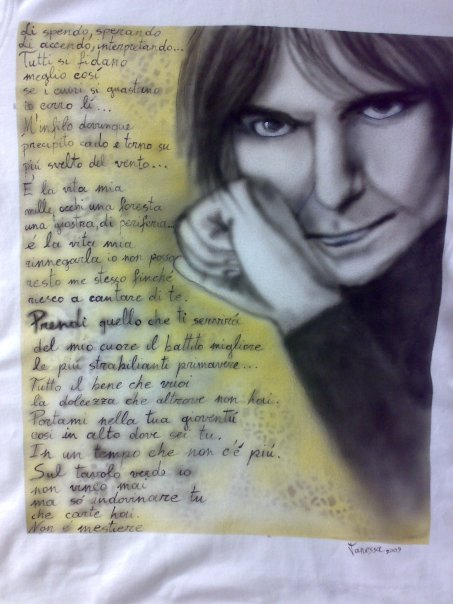 Li spendo, sperando
Li accendo, interpretando...
Tutti si fidano
meglio così
se i cuori si guastano
io corro lì...
M'infilo dovunque
precipito cado e torno su
più svelto del vento...
È la vita mia
mille occhi una foresta
una giostra, di periferia...
è la vita mia
rinnegarla io non posso
resto me stesso finché
riesco a cantare di te.
Prendi quello che ti servirà
del mio cuore il battito migliore
le più strabilianti primavere...
Tutto il bene che vuoi
la dolcezza che altrove non hai.
Portami nella tua gioventù
così in alto dove sei tu.
In un tempo che non c'è più.
Sul tavolo verde io
non vinco mai
ma sò indovinare tu
che carte hai.
Non è mestiere
Vanessa 2009